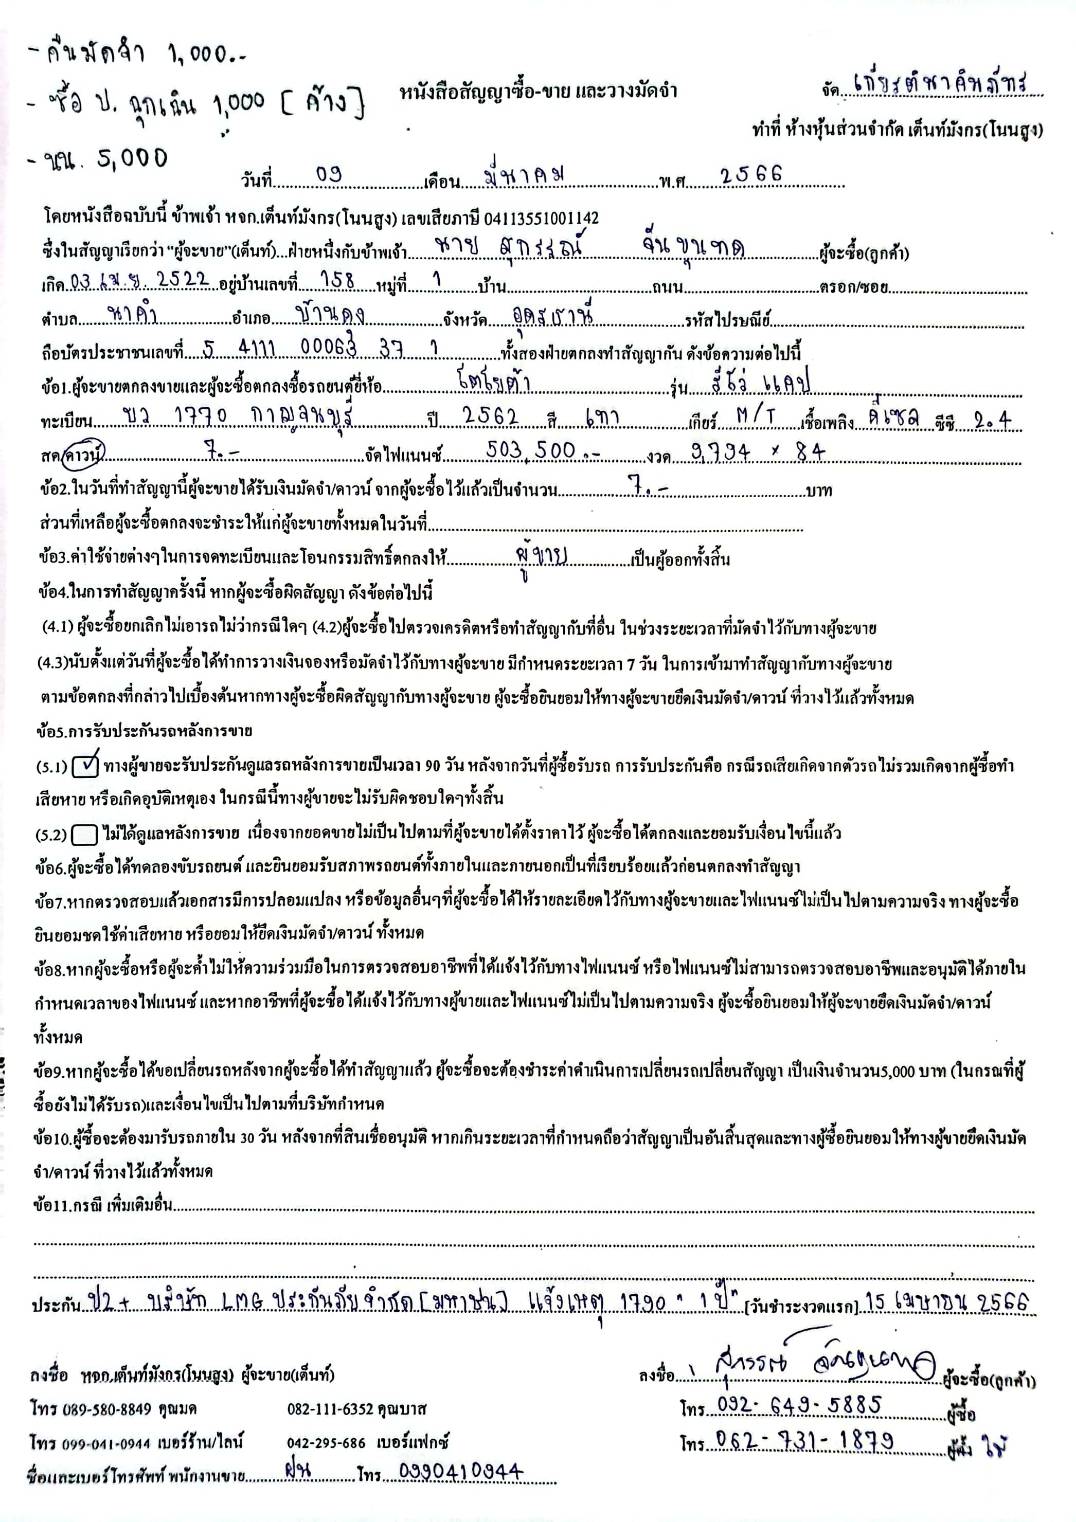 - คืนมัดจำ 1,000.-
- ซื้อ ป. ฉุกเฉิน 1,000 [ค้าง]
- นน. 5,000
หนังสือสัญญาซื้อ-ขาย และวางมัดจำ
จัด เกียรตินาคินภัทร
ทำที่ ห้างหุ้นส่วนจำกัด เต็นท์มังกร(โนนสูง)
วันที่ 09 เดือน มีนาคม พ.ศ 2566
โดยหนังสือฉบับนี้ ข้าพเจ้า หจก.เต็นท์มังกร(โนนสูง) เลขเสียภาษี 04113551001142
ซึ่งในสัญญาเรียกว่า "ผู้จะขาย"(เต็นท์)...ฝ่ายหนึ่งกับข้าพเจ้า นาย สุกรรณ์ จันขุนทด ผู้จะซื้อ(ลูกค้า)
เกิด 03 เม.ย. 2522 อยู่บ้านเลขที่ 158 หมู่ที่ 1 บ้าน ถนน ตรอก/ซอย
ตำบล นาคำ อำเภอ บ้านดุง จังหวัด อุดรธานี รหัสไปรษณีย์
ถือบัตรประชาชนเลขที่ 5 4111 00063 37 1 ทั้งสองฝ่ายตกลงทำสัญญากัน ดังข้อความต่อไปนี้
ข้อ1.ผู้จะขายตกลงขายและผู้จะซื้อตกลงซื้อรถยนต์ยี่ห้อ โตโยต้า รุ่น รีโว่ แคป
ทะเบียน ขว 1770 กาญจนบุรี ปี 2562 สี เทา เกียร์ M/T เชื้อเพลิง ดีเซล ซีซี 2.4
สด/ดาวน์ 7.- จัดไฟแนนซ์ 503,500.- งวด 9,794 × 84
ข้อ2.ในวันที่ทำสัญญานี้ผู้จะขายได้รับเงินมัดจำ/ดาวน์ จากผู้จะซื้อไว้แล้วเป็นจำนวน 7.- บาท
ส่วนที่เหลือผู้จะซื้อตกลงจะชำระให้แก่ผู้จะขายทั้งหมดในวันที่
ข้อ3.ค่าใช้จ่ายต่างๆในการจดทะเบียนและโอนกรรมสิทธิ์ตกลงให้ ผู้ขาย เป็นผู้ออกทั้งสิ้น
ข้อ4.ในการทำสัญญาครั้งนี้ หากผู้จะซื้อผิดสัญญา ดังข้อต่อไปนี้
(4.1) ผู้จะซื้อยกเลิกไม่เอารถไม่ว่ากรณีใดๆ (4.2)ผู้จะซื้อไปตรวจเครดิตหรือทำสัญญากับที่อื่น ในช่วงระยะเวลาที่มัดจำไว้กับทางผู้จะขาย
(4.3)นับตั้งแต่วันที่ผู้จะซื้อได้ทำการวางเงินจองหรือมัดจำไว้กับทางผู้จะขาย มีกำหนดระยะเวลา 7 วัน ในการเข้ามาทำสัญญากับทางผู้จะขาย
ตามข้อตกลงที่กล่าวไปเบื้องต้นหากทางผู้จะซื้อผิดสัญญากับทางผู้จะขาย ผู้จะซื้อยินยอมให้ทางผู้จะขายยึดเงินมัดจำ/ดาวน์ ที่วางไว้แล้วทั้งหมด
ข้อ5.การรับประกันรถหลังการขาย
(5.1) ✓ ทางผู้ขายจะรับประกันดูแลรถหลังการขายเป็นเวลา 90 วัน หลังจากวันที่ผู้ซื้อรับรถ การรับประกันคือ กรณีรถเสียเกิดจากตัวรถไม่รวมเกิดจากผู้ซื้อทำ
เสียหาย หรือเกิดอุบัติเหตุเอง ในกรณีนี้ทางผู้ขายจะไม่รับผิดชอบใดๆทั้งสิ้น
(5.2) ไม่ได้ดูแลหลังการขาย เนื่องจากยอดขายไม่เป็นไปตามที่ผู้จะขายได้ตั้งราคาไว้ ผู้จะซื้อได้ตกลงและยอมรับเงื่อนไขนี้แล้ว
ข้อ6.ผู้จะซื้อได้ทดลองขับรถยนต์ และยินยอมรับสภาพรถยนต์ทั้งภายในและภายนอกเป็นที่เรียบร้อยแล้วก่อนตกลงทำสัญญา
ข้อ7.หากตรวจสอบแล้วเอกสารมีการปลอมแปลง หรือข้อมูลอื่นๆที่ผู้จะซื้อได้ให้รายละเอียดไว้กับทางผู้จะขายและไฟแนนซ์ไม่เป็นไปตามความจริง ทางผู้จะซื้อ
ยินยอมชดใช้ค่าเสียหาย หรือยอมให้ยึดเงินมัดจำ/ดาวน์ ทั้งหมด
ข้อ8.หากผู้จะซื้อหรือผู้จะค้ำไม่ให้ความร่วมมือในการตรวจสอบอาชีพที่ได้แจ้งไว้กับทางไฟแนนซ์ หรือไฟแนนซ์ไม่สามารถตรวจสอบอาชีพและอนุมัติได้ภายใน
กำหนดเวลาของไฟแนนซ์ และหากอาชีพที่ผู้จะซื้อได้แจ้งไว้กับทางผู้ขายและไฟแนนซ์ไม่เป็นไปตามความจริง ผู้จะซื้อยินยอมให้ผู้จะขายยึดเงินมัดจำ/ดาวน์
ทั้งหมด
ข้อ9.หากผู้จะซื้อได้ขอเปลี่ยนรถหลังจากผู้จะซื้อได้ทำสัญญาแล้ว ผู้จะซื้อจะต้องชำระค่าดำเนินการเปลี่ยนรถเปลี่ยนสัญญา เป็นเงินจำนวน5,000 บาท (ในกรณที่ผู้
ซื้อยังไม่ได้รับรถ)และเงื่อนไขเป็นไปตามที่บริษัทกำหนด
ข้อ10.ผู้ซื้อจะต้องมารับรถภายใน 30 วัน หลังจากที่สินเชื่ออนุมัติ หากเกินระยะเวลาที่กำหนดถือว่าสัญญาเป็นอันสิ้นสุดและทางผู้ซื้อยินยอมให้ทางผู้ขายยึดเงินมัด
จำ/ดาวน์ ที่วางไว้แล้วทั้งหมด
ข้อ11.กรณี เพิ่มเติมอื่น
ประกัน ป2+ บริษัท LMG ประกันภัย จำกัด [มหาชน] แจ้งเหตุ 1790 "1 ปี" [วันชำระงวดแรก] 15 เมษายน 2566
ลงชื่อ หจก.เต็นท์มังกร(โนนสูง) ผู้จะขาย(เต็นท์)
ลงชื่อ สุกรรณ์ จันขุนทด ผู้จะซื้อ(ลูกค้า)
โทร 089-580-8849 คุณมด 082-111-6352 คุณบาส
โทร 092-649-5885 ผู้ซื้อ
โทร 099-041-0944 เบอร์ร้าน/ไลน์ 042-295-686 เบอร์แฟกซ์
โทร 062-731-1879
ชื่อและเบอร์โทรศัพท์ พนักงานขาย ฝน โทร 0990410944